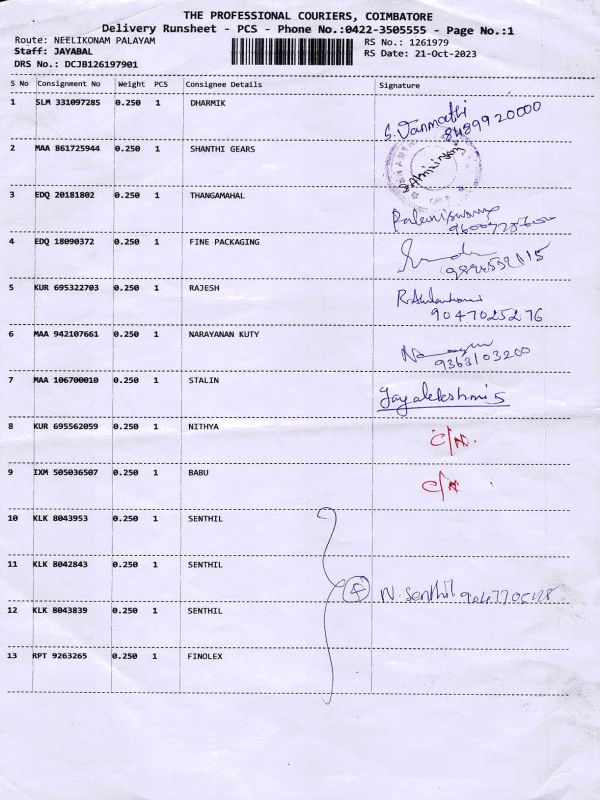 THE PROFESSIONAL COURIERS, COIMBATORE
Delivery Runsheet - PCS - Phone No.:0422-3505555 - Page No.:1
Route: NEELIKONAM PALAYAM RS No.: 1261979
Staff: JAYABAL RS Date: 21-Oct-2023
DRS No.: DCJB126197901
S No Consignment No Weight PCS Consignee Details Signature
1 SLM 331097285 0.250 1 DHARMIK S. Vanmathi
8489920000
2 MAA 861725944 0.250 1 SHANTHI GEARS
3 EDQ 20181802 0.250 1 THANGAMAHAL Palaniswamy
4 EDQ 18090372 0.250 1 FINE PACKAGING
5 KUR 695322703 0.250 1 RAJESH
9047025276
6 MAA 942107661 0.250 1 NARAYANAN KUTY
9363103200
7 MAA 106700010 0.250 1 STALIN Jayalekshmi S
8 KUR 695562059 0.250 1 NITHYA C/N.
9 IXM 505036507 0.250 1 BABU C/N.
10 KLK 8043953 0.250 1 SENTHIL
11 KLK 8042843 0.250 1 SENTHIL 4 N. Senthil
12 KLK 8043839 0.250 1 SENTHIL
13 RPT 9263265 0.250 1 FINOLEX